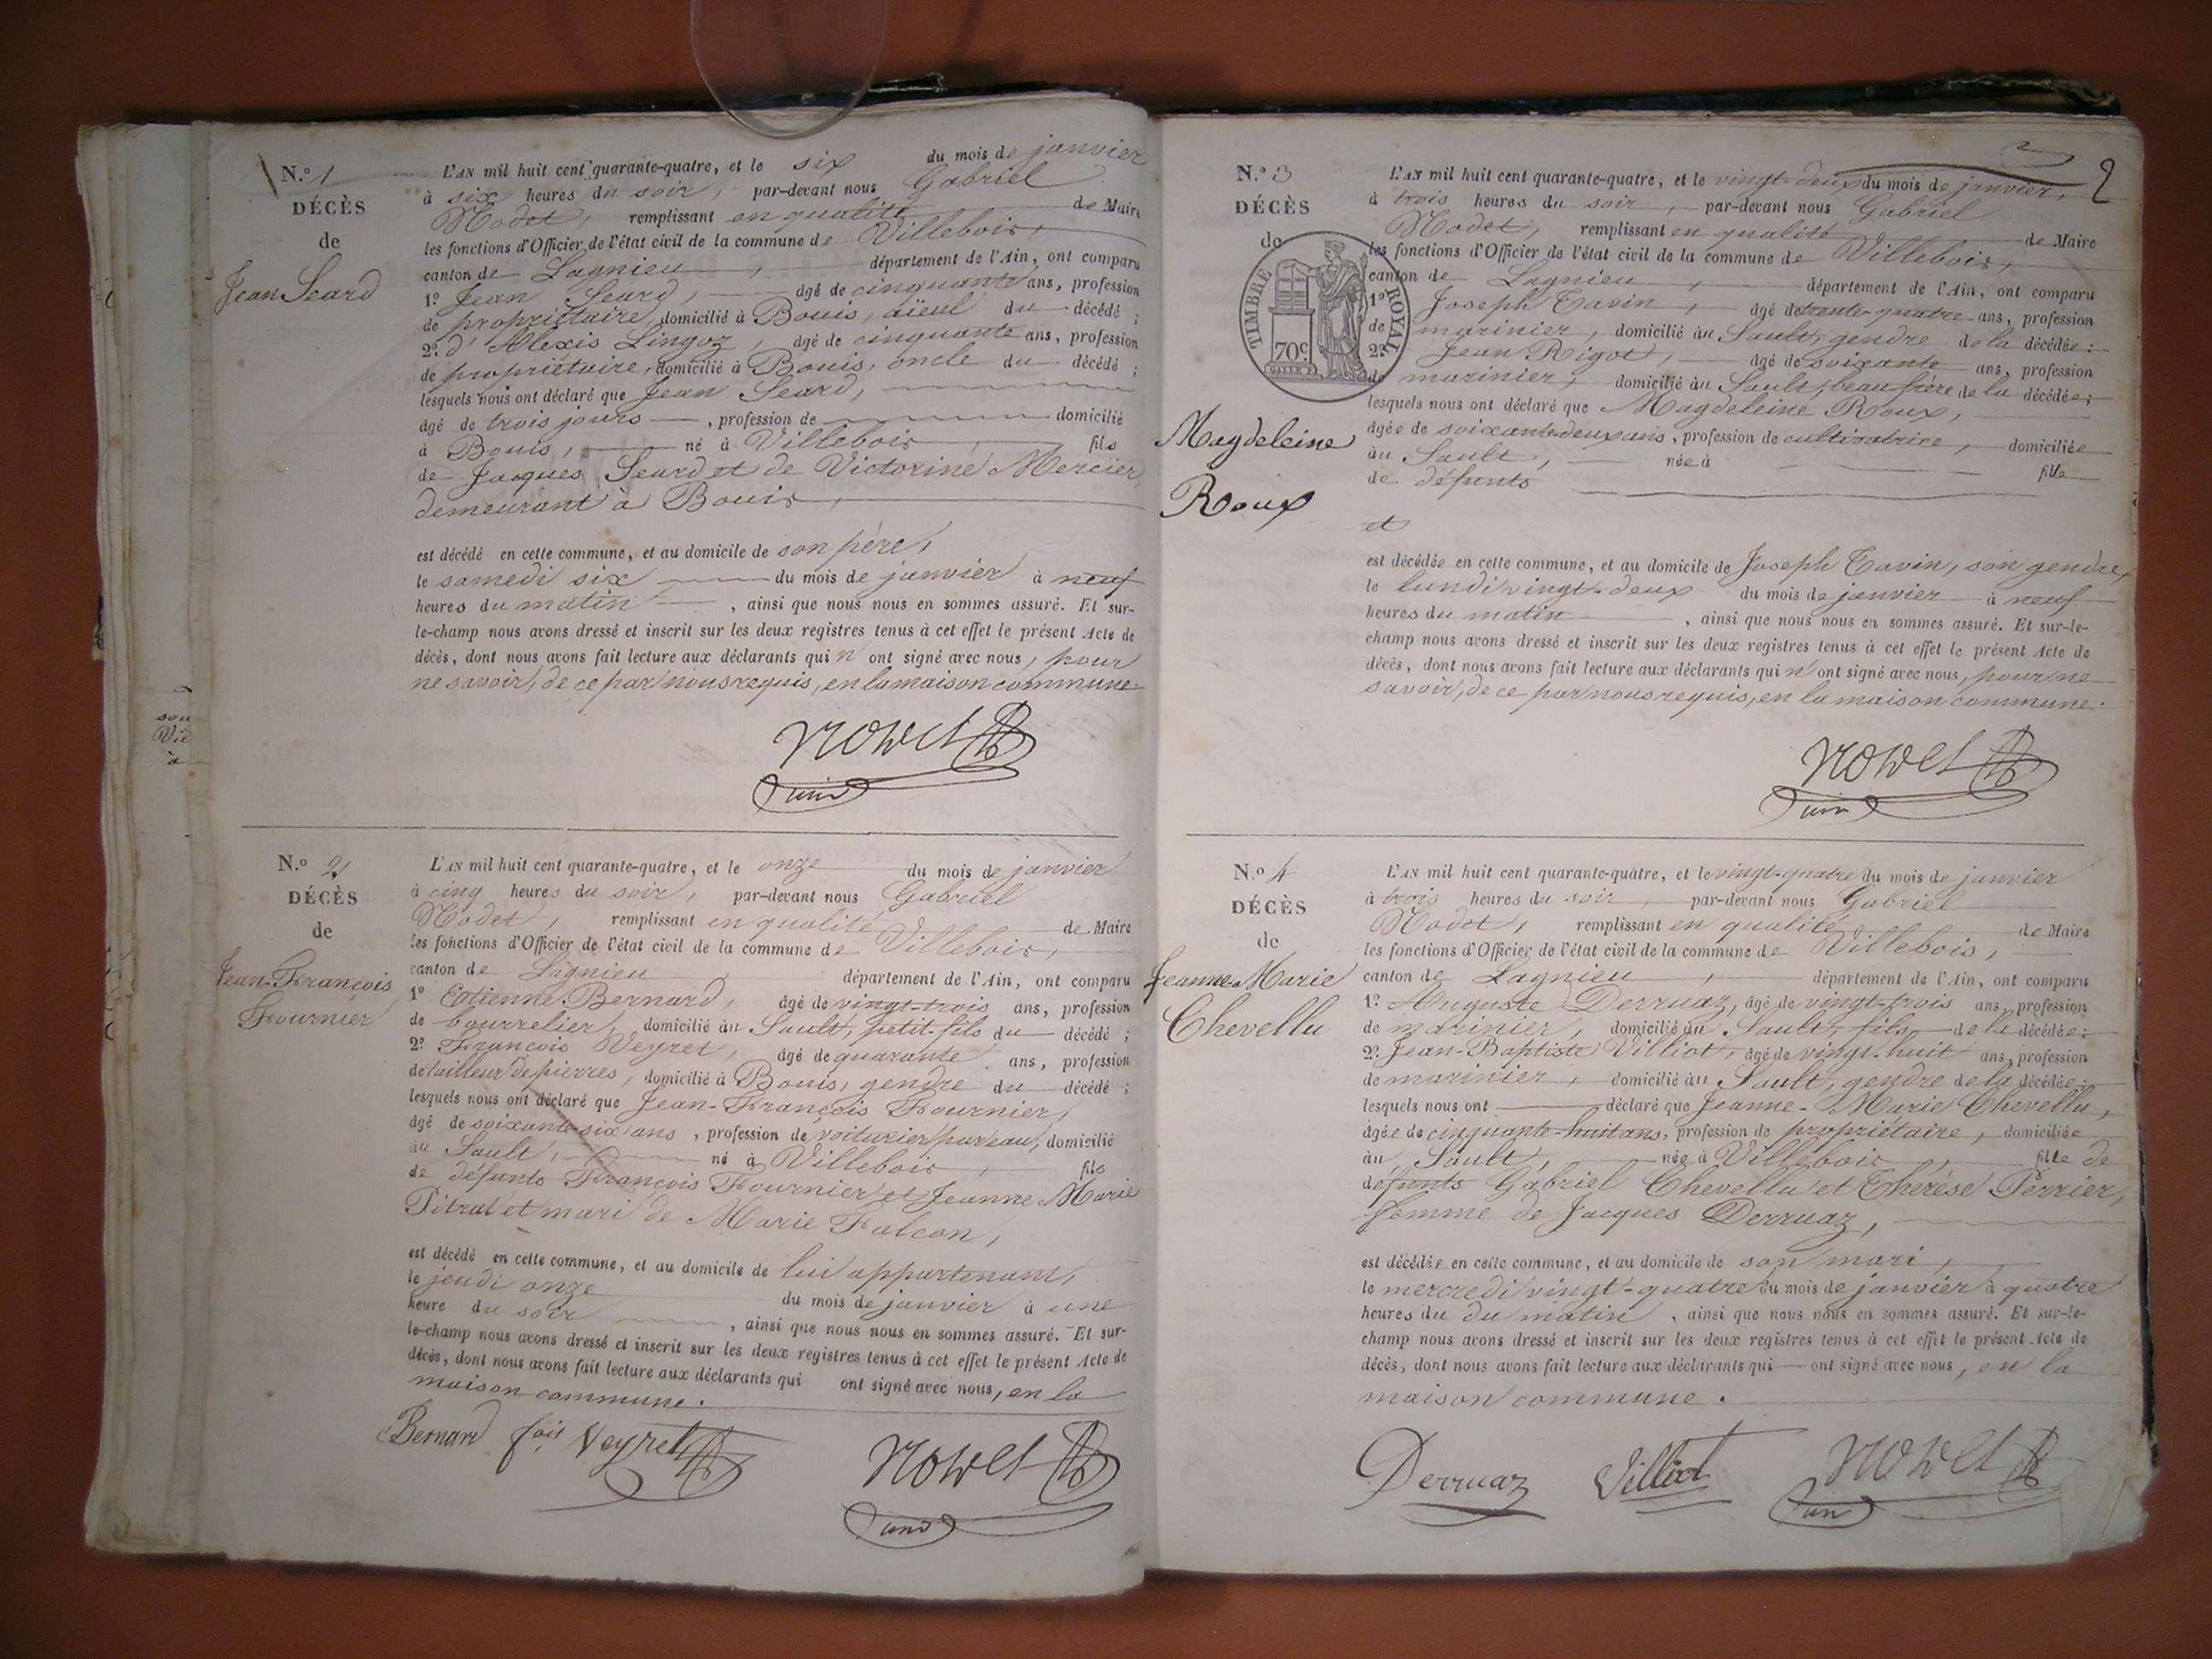 N.º 1
DÉCÈS
de
Jean Seard
L'AN mil huit cent quarante-quatre, et le six du mois de janvier
à six heures du soir, par-devant nous Gabriel
Nodet, remplissant en qualité de Maire
les fonctions d'Officier de l'état civil de la commune de Villebois,
canton de Lagnieu, département de l'Ain, ont comparu
1º Jean Seard, âgé de cinquante ans, profession
de propriétaire, domicilié à Bouis, aïeul du décédé ;
2º d' Alexis Lingoz, âgé de cinquante ans, profession
de propriétaire, domicilié à Bouis, oncle du décédé ;
lesquels nous ont déclaré que Jean Seard,
âgé de trois jours, profession de domicilié
à Bouis, né à Villebois, fils
de Jacques Seard et de Victorine Mercier,
demeurant à Bouis,
est décédé en cette commune, et au domicile de son père,
le samedi six du mois de janvier à neuf
heures du matin, ainsi que nous nous en sommes assuré. Et sur-
le-champ nous avons dressé et inscrit sur les deux registres tenus à cet effet le présent Acte de
décès, dont nous avons fait lecture aux déclarants qui n' ont signé avec nous, pour
ne savoir, de ce par nous requis, en la maison commune.
N.º 2
DÉCÈS
de
Jean-François
Fournier
L'AN mil huit cent quarante-quatre, et le onze du mois de janvier
à cinq heures du soir, par-devant nous Gabriel
Nodet, remplissant en qualité de Maire
les fonctions d'Officier de l'état civil de la commune de Villebois,
canton de Lagnieu département de l'Ain, ont comparu
1º Etienne Bernard, âgé de vingt-trois ans, profession
de bourrelier, domicilié au Sault, petit-fils du décédé ;
2º François Veyret, âgé de quarante ans, profession
de tailleur de pierres, domicilié à Bouis, gendre du décédé ;
lesquels nous ont déclaré que Jean-François Fournier,
âgé de soixante-six ans, profession de voiturier par eau, domicilié
au Sault, né à Villebois, fils
de défunts François Fournier et Jeanne Marie
Pitrat et mari de Marie Falcon,
est décédé en cette commune, et au domicile de lui appartenant,
le jeudi onze du mois de janvier à une
heure du soir, ainsi que nous nous en sommes assuré. Et sur-
le-champ nous avons dressé et inscrit sur les deux registres tenus à cet effet le présent Acte de
décès, dont nous avons fait lecture aux déclarants qui ont signé avec nous, en la
maison commune.
Bernard fois Veyret
2
N.º 3
DÉCÈS
de
TIMBRE ROYAL
70c
Magdeleine
Roux
L'AN mil huit cent quarante-quatre, et le vingt-deux du mois de janvier,
à trois heures du soir, par-devant nous Gabriel
Nodet, remplissant en qualité de Maire
les fonctions d'Officier de l'état civil de la commune de Villebois,
canton de Lagnieu, département de l'Ain, ont comparu
1º Joseph Tavin, âgé de trente-quatre ans, profession
de marinier, domicilié au Sault, gendre de la décédée ;
2º Jean Rigot, âgé de soixante ans, profession
de marinier, domicilié au Sault, beau-frère de la décédée ;
lesquels nous ont déclaré que Magdeleine Roux,
âgée de soixante-deux ans, profession de cultivatrice, domiciliée
au Sault, née à fille
de défunts
et
est décédée en cette commune, et au domicile de Joseph Tavin, son gendre,
le lundi vingt-deux du mois de janvier à neuf
heures du matin, ainsi que nous nous en sommes assuré. Et sur-le-
champ nous avons dressé et inscrit sur les deux registres tenus à cet effet le présent Acte de
décès, dont nous avons fait lecture aux déclarants qui n' ont signé avec nous, pour ne
savoir, de ce par nous requis, en la maison commune.
N.º 4
DÉCÈS
de
Jeanne Marie
Chevellu
L'AN mil huit cent quarante-quatre, et le vingt-quatre du mois de janvier
à trois heures du soir, par-devant nous Gabriel
Nodet, remplissant en qualité de Maire
les fonctions d'Officier de l'état civil de la commune de Villebois,
canton de Lagnieu, département de l'Ain, ont comparu
1º Auguste Derruaz, âgé de vingt-trois ans, profession
de marinier, domicilié au Sault, fils de la décédée ;
2º Jean-Baptiste Villiot, âgé de vingt-huit ans, profession
de marinier, domicilié au Sault, gendre de la décédée ;
lesquels nous ont déclaré que Jeanne-Marie Chevellu,
âgée de cinquante-huit ans, profession de propriétaire, domiciliée
au Sault, née à Villebois, fille de
défunts Gabriel Chevellu et Thérèse Perrier,
femme de Jacques Derruaz,
est décédée en cette commune, et au domicile de son mari,
le mercredi vingt-quatre du mois de janvier à quatre
heures du du matin, ainsi que nous nous en sommes assuré. Et sur-le-
champ nous avons dressé et inscrit sur les deux registres tenus à cet effet le présent Acte de
décès, dont nous avons fait lecture aux déclarants qui ont signé avec nous, en la
maison commune.
Derruaz Villiot